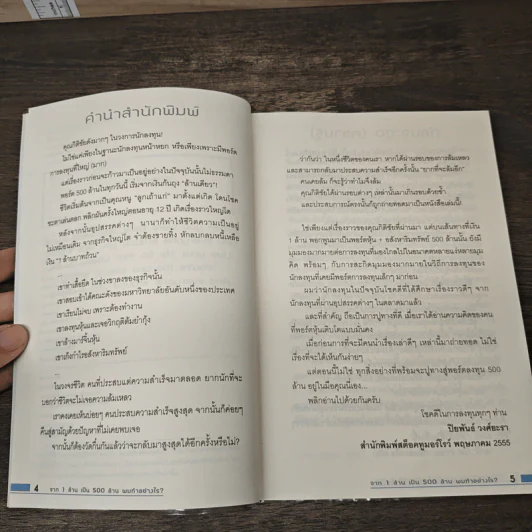 คำนำสำนักพิมพ์
คุณกิติชัยดังมากๆ ในวงการนักลงทุน!
ไม่ใช่แค่เพียงในฐานะนักลงทุนหน้าหยก หรือเพียงเพราะมีพอร์ต
การลงทุนที่ใหญ่ (มาก)
แต่เรื่องราวก่อนจะก้าวมาเป็นอยู่อย่างในปัจจุบันนั้นไม่ธรรมดา
พอร์ต 500 ล้านในทุกวันนี้ เริ่มจากเงินก้นถุง "ล้านเดียว"!
ชีวิตเริ่มต้นจากเป็นคุณหนู "ลูกเถ้าแก่" มาตั้งแต่เกิด โดนโชค
ชะตาเล่นตลก พลิกผันครั้งใหญ่ตอนอายุ 12 ปี เกิดเรื่องราวใหญ่โต
หลังจากนั้นอุปสรรคต่างๆ นานาก็ทำให้ชีวิตความเป็นอยู่
ไม่เหมือนเดิม จากธุรกิจใหญ่โต จำต้องขายทิ้ง หักลบกลบหนี้เหลือ
เงิน "1 ล้านบาทถ้วน"
...
เขาท่าเสื้อยืด ในช่วงขาลงของธุรกิจนั้น
เขาสอบเข้าได้คณะดังของมหาวิทยาลัยอันดับหนึ่งของประเทศ
เขาเรียนไม่จบ เพราะต้องทำงาน
เขาลงทุนหุ้นและเจอวิกฤติต้มยำกุ้ง
เขาล้างมาร์จิ้นหุ้น
เขาเก็งกำไรอสังหาริมทรัพย์
...
ในวงจรชีวิต คนที่ประสบแต่ความสำเร็จมาตลอด ยากนักที่จะ
บอกว่าชีวิตจะไม่เจอความล้มเหลว
เราคงเคยเห็นบ่อยๆ คนประสบความสำเร็จสูงสุด จากนั้นก็ค่อยๆ
คืนสู่สามัญด้วยปัญหาที่ไม่เคยพบเจอ
จากนั้นก็ต้องวัดกึ๋นกันแล้วว่าจะกลับมาสูงสุดได้อีกครั้งหรือไม่?
4 จาก 1 ล้าน เป็น 500 ล้าน ผมทำอย่างไร?
ว่ากันว่า ในหนึ่งชีวิตของคนเรา หากได้ผ่านรสชาติของการล้มเหลว
และสามารถกลับมาประสบความสำเร็จอีกครั้งนั้น "ยากที่จะล้มอีก"
คนเคยล้ม ก็จะรู้ว่าทำไมจึงล้ม
คุณกิติชัยได้ผ่านรสชาติต่างๆ เหล่านั้นมาเกินรอบด้วยซ้ำ
และประสบการณ์ตรงนั้นก็ถูกถ่ายทอดมาเป็นหนังสือเล่มนี้
ใช่เพียงแต่เรื่องราวของคุณกิติชัยที่ผ่านมา แต่บนเส้นทางที่เงิน
1 ล้าน พอกพูนมาเป็นพอร์ตหุ้น + อสังหาริมทรัพย์ 500 ล้านนั้น ยังมี
มุมมองมากมายต่อการลงทุนที่มองไกลไปในอนาคตหลายแง่หลายมุม
คิด พร้อมๆ กับการสะกิดมุมมองมากมายในวิถีการลงทุนของ
นักลงทุนที่เคยมีพอร์ตการลงทุนเล็กๆ มาก่อน
ผมว่านักลงทุนในปัจจุบันโชคดีที่ได้ศึกษาเรื่องราวดีๆ จาก
นักลงทุนที่ผ่านอุปสรรคต่างๆ ในตลาดมาแล้ว
และที่สำคัญ ถือเป็นการปูทางที่ดี เมื่อเราได้อ่านความคิดของคน
ที่พอร์ตหุ้นเติบโตแบบมั่นคง
เมื่อก่อนการที่จะมีคนนำเรื่องเล่าดีๆ เหล่านี้มาถ่ายทอด ไม่ใช่
เรื่องที่จะได้เห็นกันง่ายๆ
แต่ตอนนี้ไม่ใช่ ทุกสิ่งอย่างที่พร้อมจะปูทางสู่พอร์ตลงทุน 500
ล้าน อยู่ในมือคุณนี่เอง...
พลิกอ่านไปด้วยกันครับ
โชคดีในการลงทุนทุกๆ ท่าน
ปิยพันธ์ วงศ์ยะรา
สำนักพิมพ์สต็อคทูมอร์โรว์ พฤษภาคม 2555
จาก 1 ล้าน เป็น 500 ล้าน ผมทำอย่างไร? 5